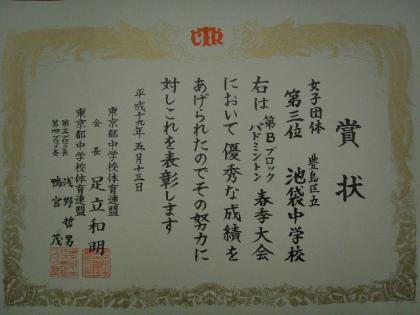 賞状
女子団体
第三位
豊島区立
池袋中学校
右は第Bブロック
バドミントン
春季大会
において優秀な成績を
あげられたのでその努力に
対しこれを表彰します
平成十九年五月十三日
東京都中学校体育連盟
会長 足立和明
東京都中学校体育連盟
第三ブロック長 浅野哲男
第四ブロック長 鴨宮茂